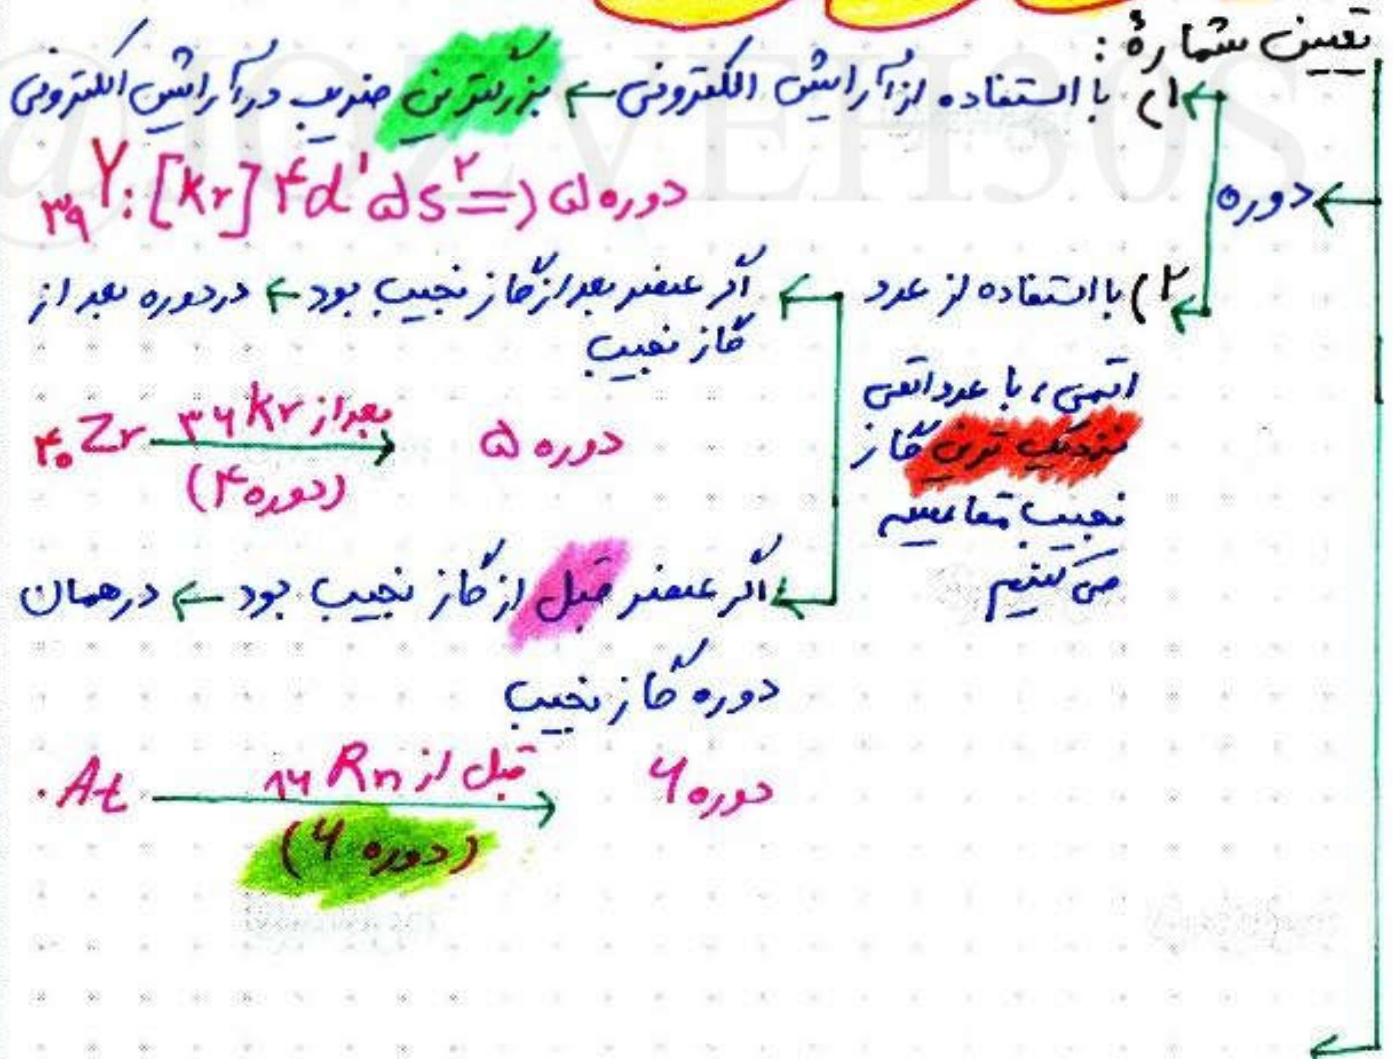 تعیین شمارهٔ :
دوره
۱) با استفاده از آرایش الکترونی ← بزرگترین ضریب در آرایش الکترونی
₃₉Y: [Kr] ۴d¹ ۵s² => دوره ۵
۲) با استفاده از عدد
اتمی، با عدد اتمی
نزدیک ترین گاز
نجیب مقایسه
می کنیم
اگر عنصر بعد از گاز نجیب بود ← در دوره بعد از
گاز نجیب
۴۰Zr بعد از ۳۶Kr → دوره ۵
(دوره ۴)
اگر عنصر قبل از گاز نجیب بود ← در همان
دوره گاز نجیب
.At قبل از ۸۶Rn → دوره ۶
(دوره ۶)
@JOZVEH30S